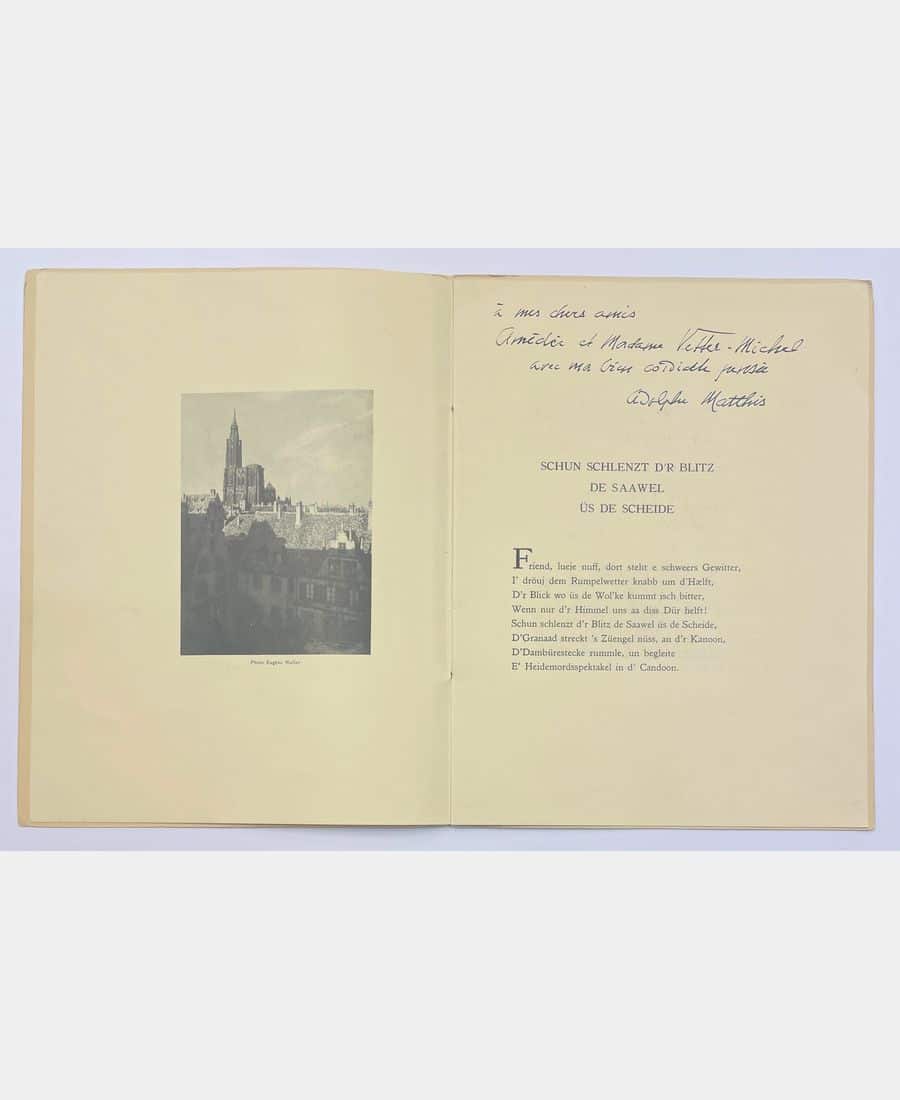 Photo Eugène Muller
à mes chers amis
Amédée et Madame Vetter-Michel
avec ma bien cordiale pensée
Adolphe Matthis
SCHUN SCHLENZT D'R BLITZ
DE SAAWEL
ÜS DE SCHEIDE
Friend, lueje nuff, dort steht e schweers Gewitter,
I' dröuj dem Rumpelwetter knabb um d'Hælft,
D'r Blick wo üs de Wol'ke kummt isch bitter,
Wenn nur d'r Himmel uns aa diss Dür helft!
Schun schlenzt d'r Blitz de Saawel üs de Scheide,
D'Granaad streckt 's Züengel nüss, an d'r Kanoon,
D'Dambürestecke rummle, un begleite
E' Heidemordsspektakel in d' Candoon.